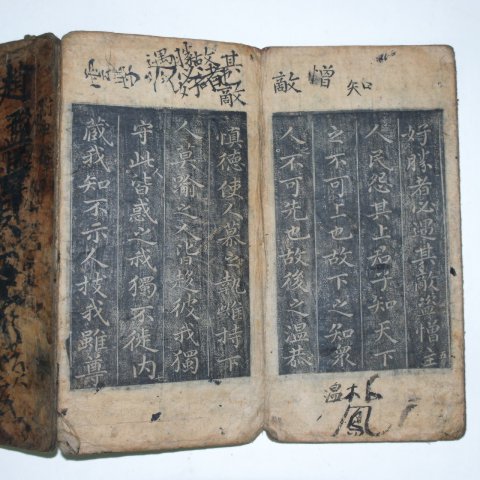 知 憎 敵
好勝者必遇其敵盜憎主
人民怨其上君子知天下
之不可上也故下之知衆
人不可先也故後之温恭
朴鳳
温
其敵
慎德使人慕之執雌持下
人莫踰之人皆趍彼我獨
守此人皆惑之我獨不徙内
蔵我知不示人技我雖尊